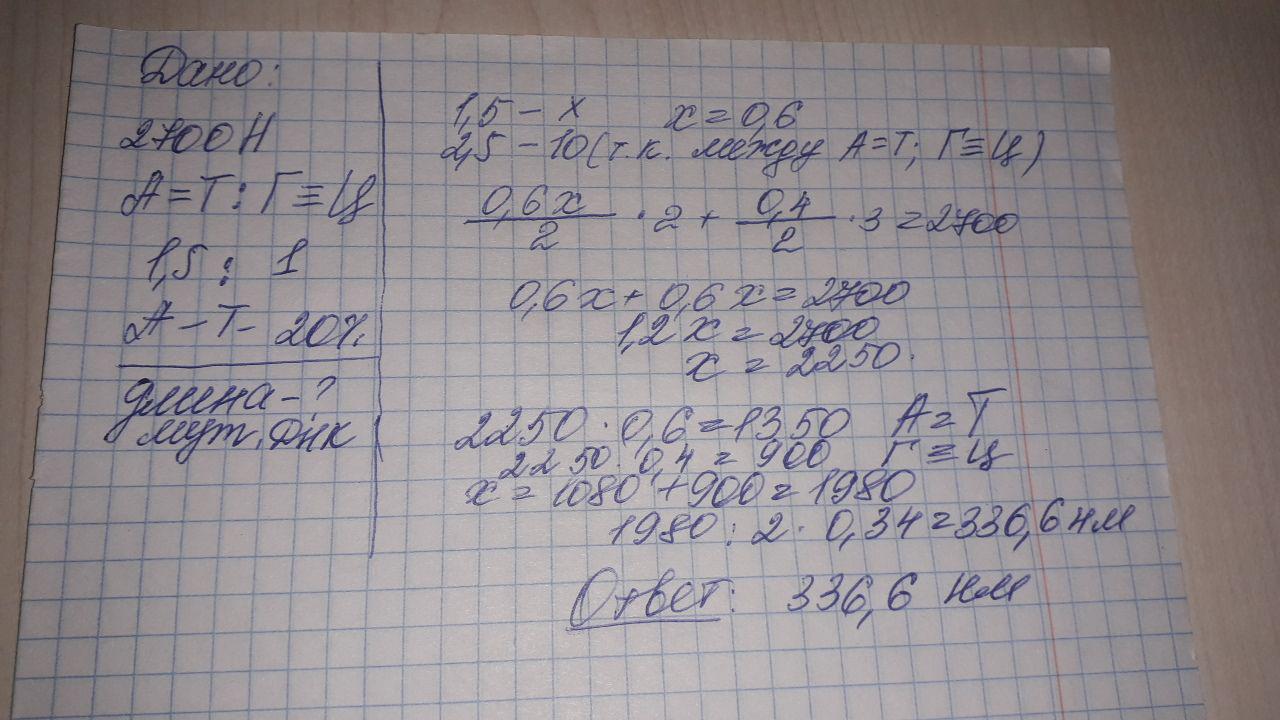 Дано:
2700 Н
А=Т : Г≡Ц
1,5 : 1
А-Т- 20%
длина-?
мут. днк
1,5 - х х = 0,6
2,5 - 10 (т.к. между А=Т; Г≡Ц)
0,6х/2 · 2 + 0,4/2 · 3 = 2700
0,6х + 0,6х = 2700
1,2х = 2700
х = 2250.
2250 · 0,6 = 1350 А=Т
2250 · 0,4 = 900 Г≡Ц
х = 1080 + 900 = 1980
1980 : 2 · 0,34 = 336,6 нм
Ответ: 336,6 нм